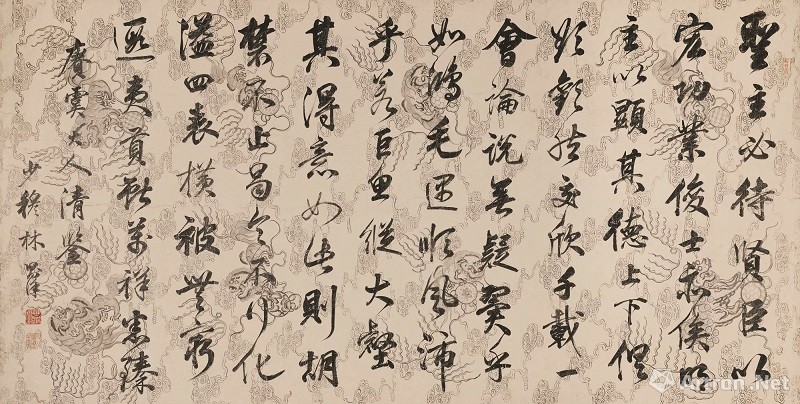 聖主必待賢臣以
宏功業俊士亦俟明
主以顯其德上下俱
欲歡然交欣千載一
會論說無疑翼乎
如鴻毛遇順風沛
乎若巨魚縱大壑
其得意如此則胡
禁不止曷令不行化
溢四表橫被無窮
遐夷貢獻萬祥悉臻
賡虞大人清鑒
少穆林則徐
Artron.Net